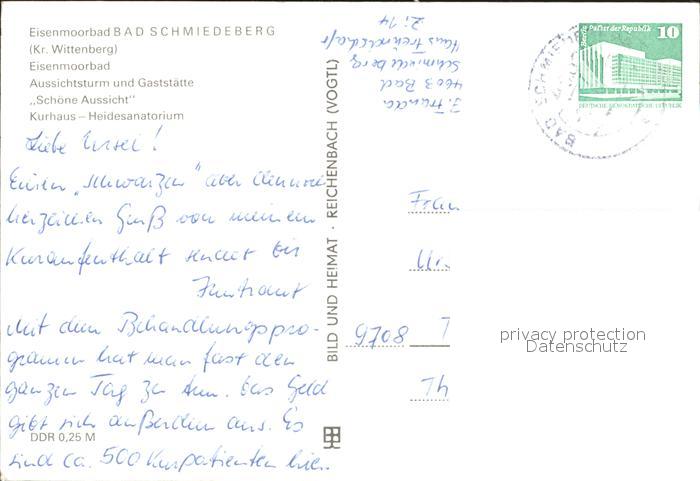 Eisenmoorbad BAD SCHMIEDEBERG
(Kr. Wittenberg)
Eisenmoorbad
Aussichtsturm und Gaststätte
„Schöne Aussicht“
Kurhaus – Heidesanatorium
Liebe Ursel!
Einen „schwarzen“ aber dennoch
herzlichen Gruß von meinem
Kuraufenthalt sendet Dir
Mit dem Behandlungspro-
gramm hat man fast den
ganzen Tag zu tun. Das Geld
gibt sich außerdem aus. Es
sind ca. 500 Kurpatienten hier.
DDR 0,25 M
BILD UND HEIMAT · REICHENBACH (VOGTL)
4603 Bad
Schmiedeberg
Haus Freundschaft
Z. 14
Berlin, Palast der Republik
10
DEUTSCHE DEMOKRATISCHE REPUBLIK
BAD SCHMIEDE
Frau
9708
privacy protection
Datenschutz